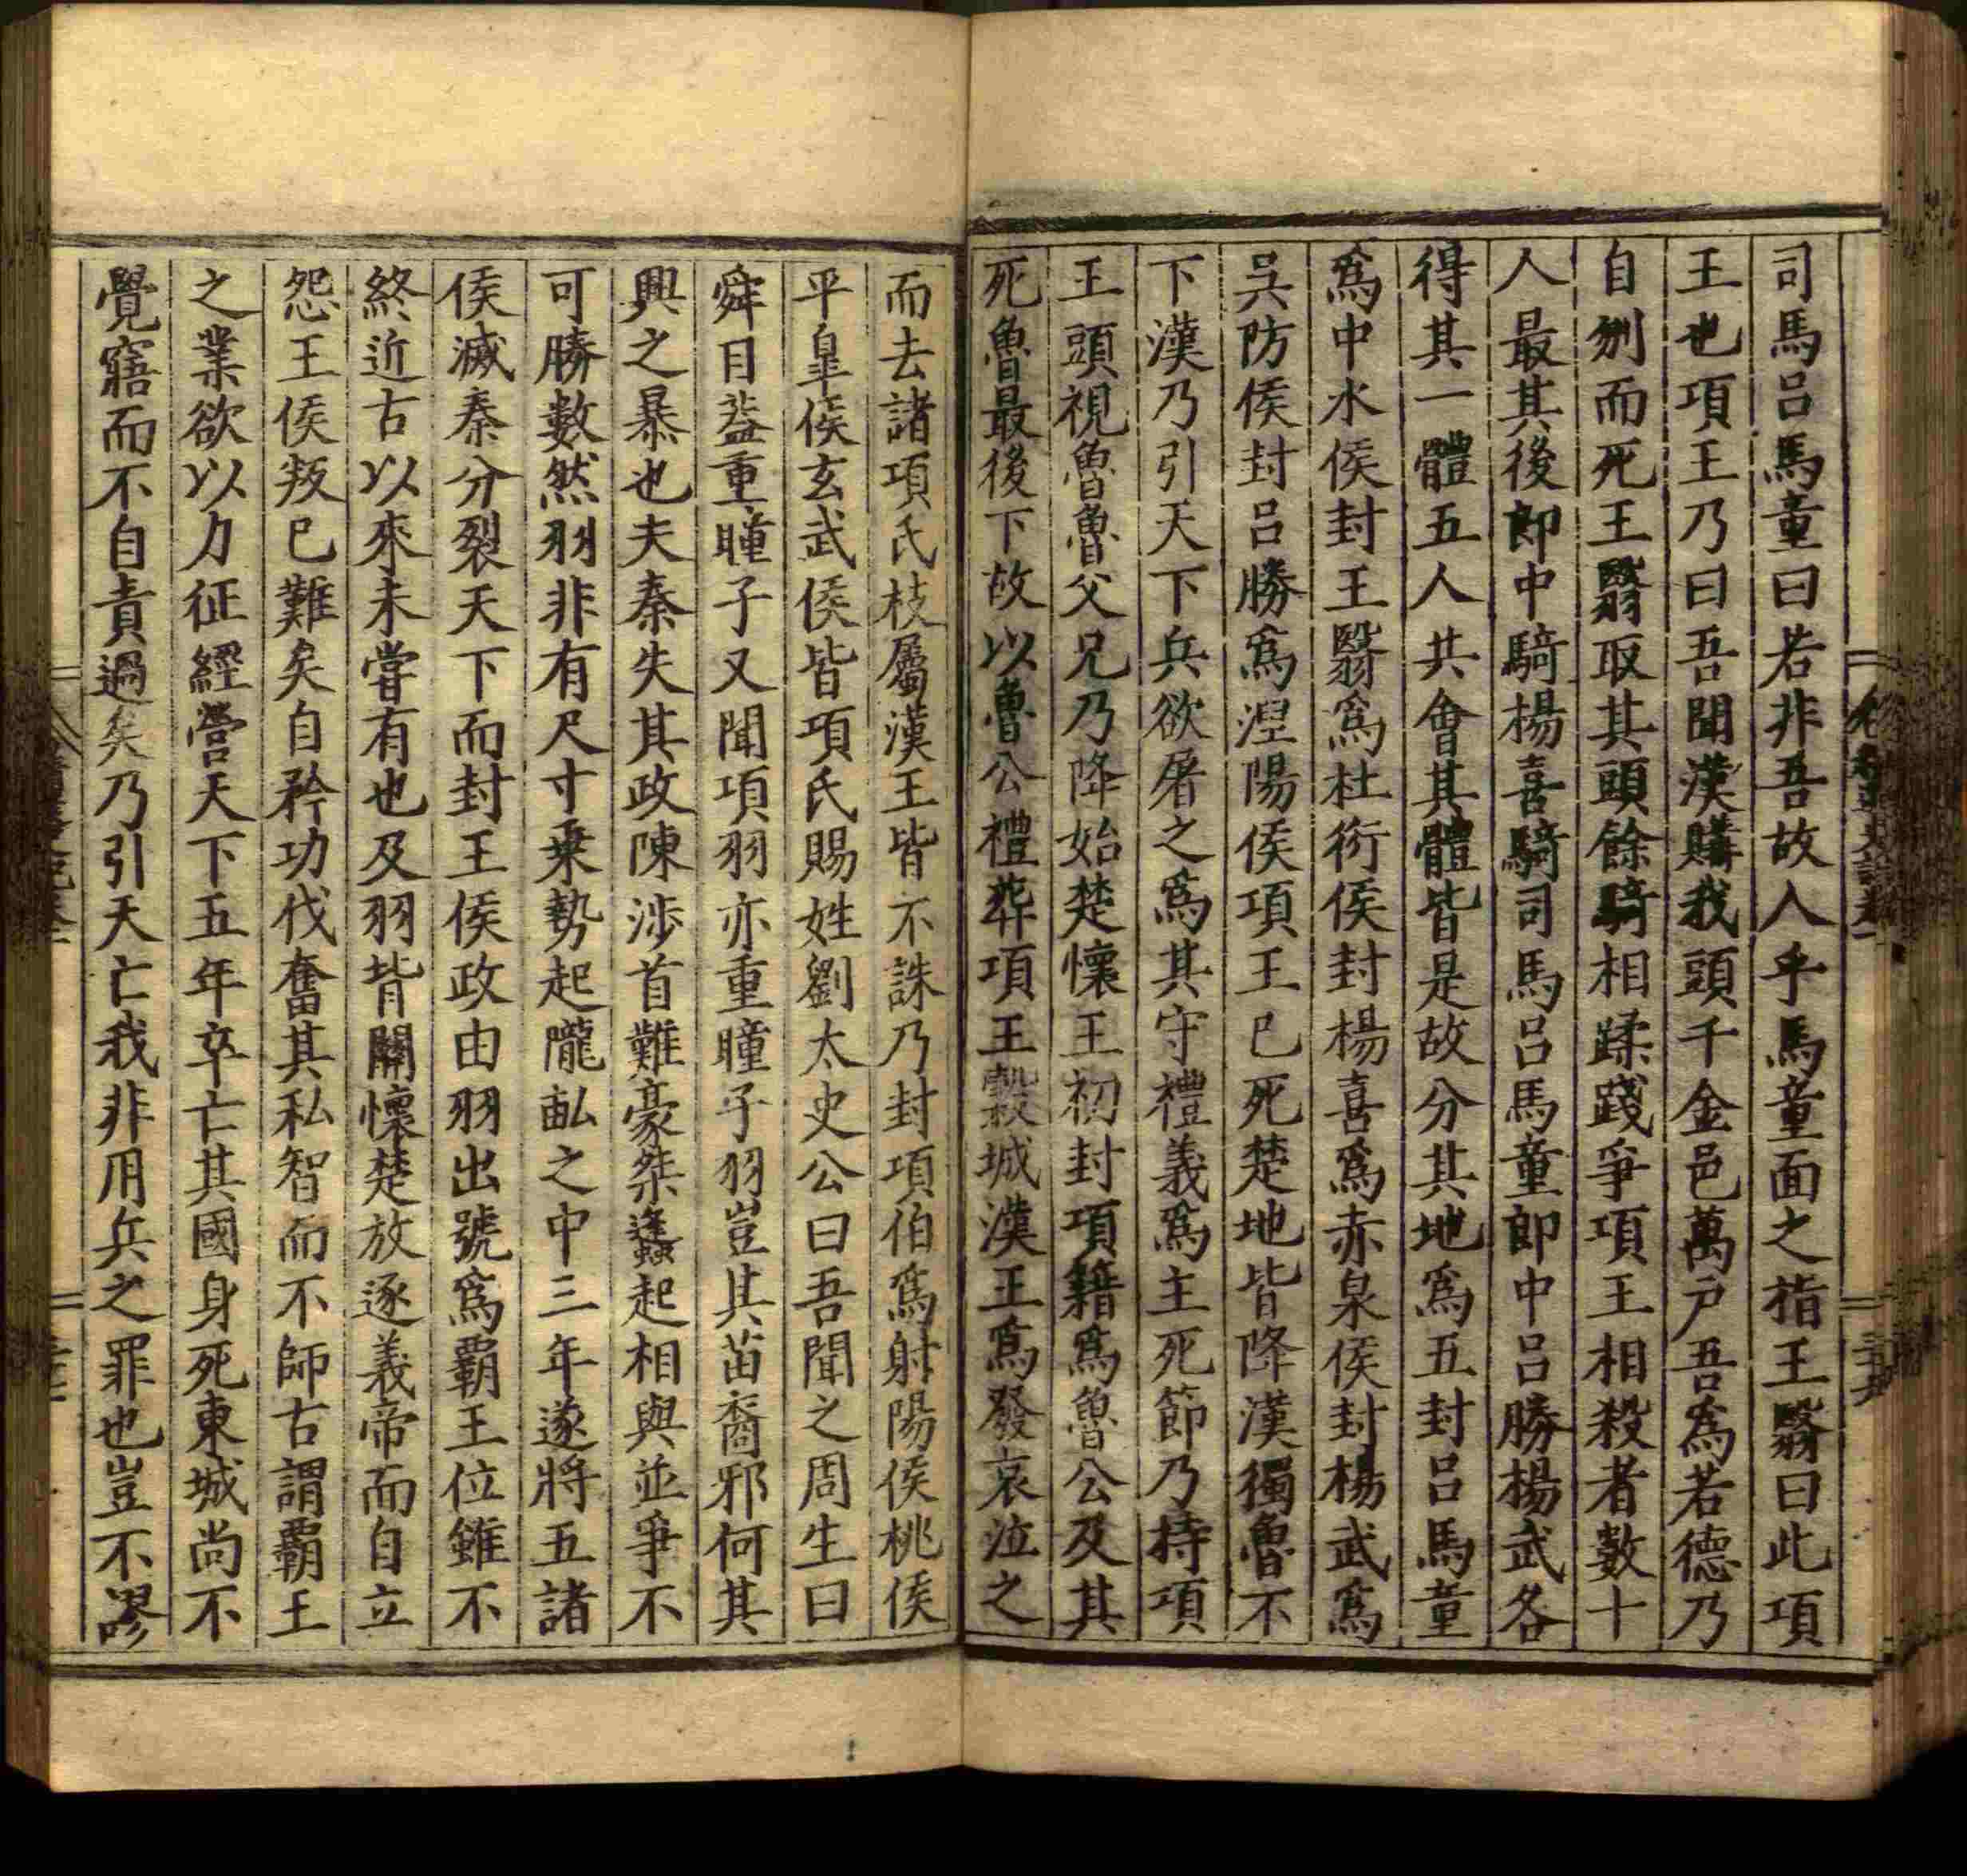 司馬呂馬童曰若非吾故人乎馬童面之指王翳曰此項
王也項王乃曰吾聞漢購我頭千金邑萬戶吾為若德乃
自刎而死王翳取其頭餘騎相蹂踐爭項王相殺者數十
人最其後郎中騎楊喜騎司馬呂馬童郎中呂勝楊武各
得其一體五人共會其體皆是故分其地為五封呂馬童
為中水侯封王翳為杜衍侯封楊喜為赤泉侯封楊武為
吳防侯封呂勝為涅陽侯項王已死楚地皆降漢獨魯不
下漢乃引天下兵欲屠之為其守禮義為主死節乃持項
王頭視魯魯父兄乃降始楚懷王初封項籍為魯公及其
死魯最後下故以魯公禮葬項王穀城漢王為發哀泣之
而去諸項氏枝屬漢王皆不誅乃封項伯為射陽侯桃侯
平皐侯玄武侯皆項氏賜姓劉太史公曰吾聞之周生曰
舜目蓋重瞳子又聞項羽亦重瞳子羽豈其苗裔邪何其
興之暴也夫秦失其政陳涉首難豪桀蠭起相與並爭不
可勝數然羽非有尺寸乗勢起隴畝之中三年遂將五諸
侯滅秦分裂天下而封王侯政由羽出號為霸王位雖不
終近古以來未嘗有也及羽背關懷楚放逐義帝而自立
怨王侯叛已難矣自矜功伐奮其私智而不師古謂霸王
之業欲以力征經營天下五年卒亡其國身死東城尚不
覺寤而不自責過矣乃引天亡我非用兵之罪也豈不謬